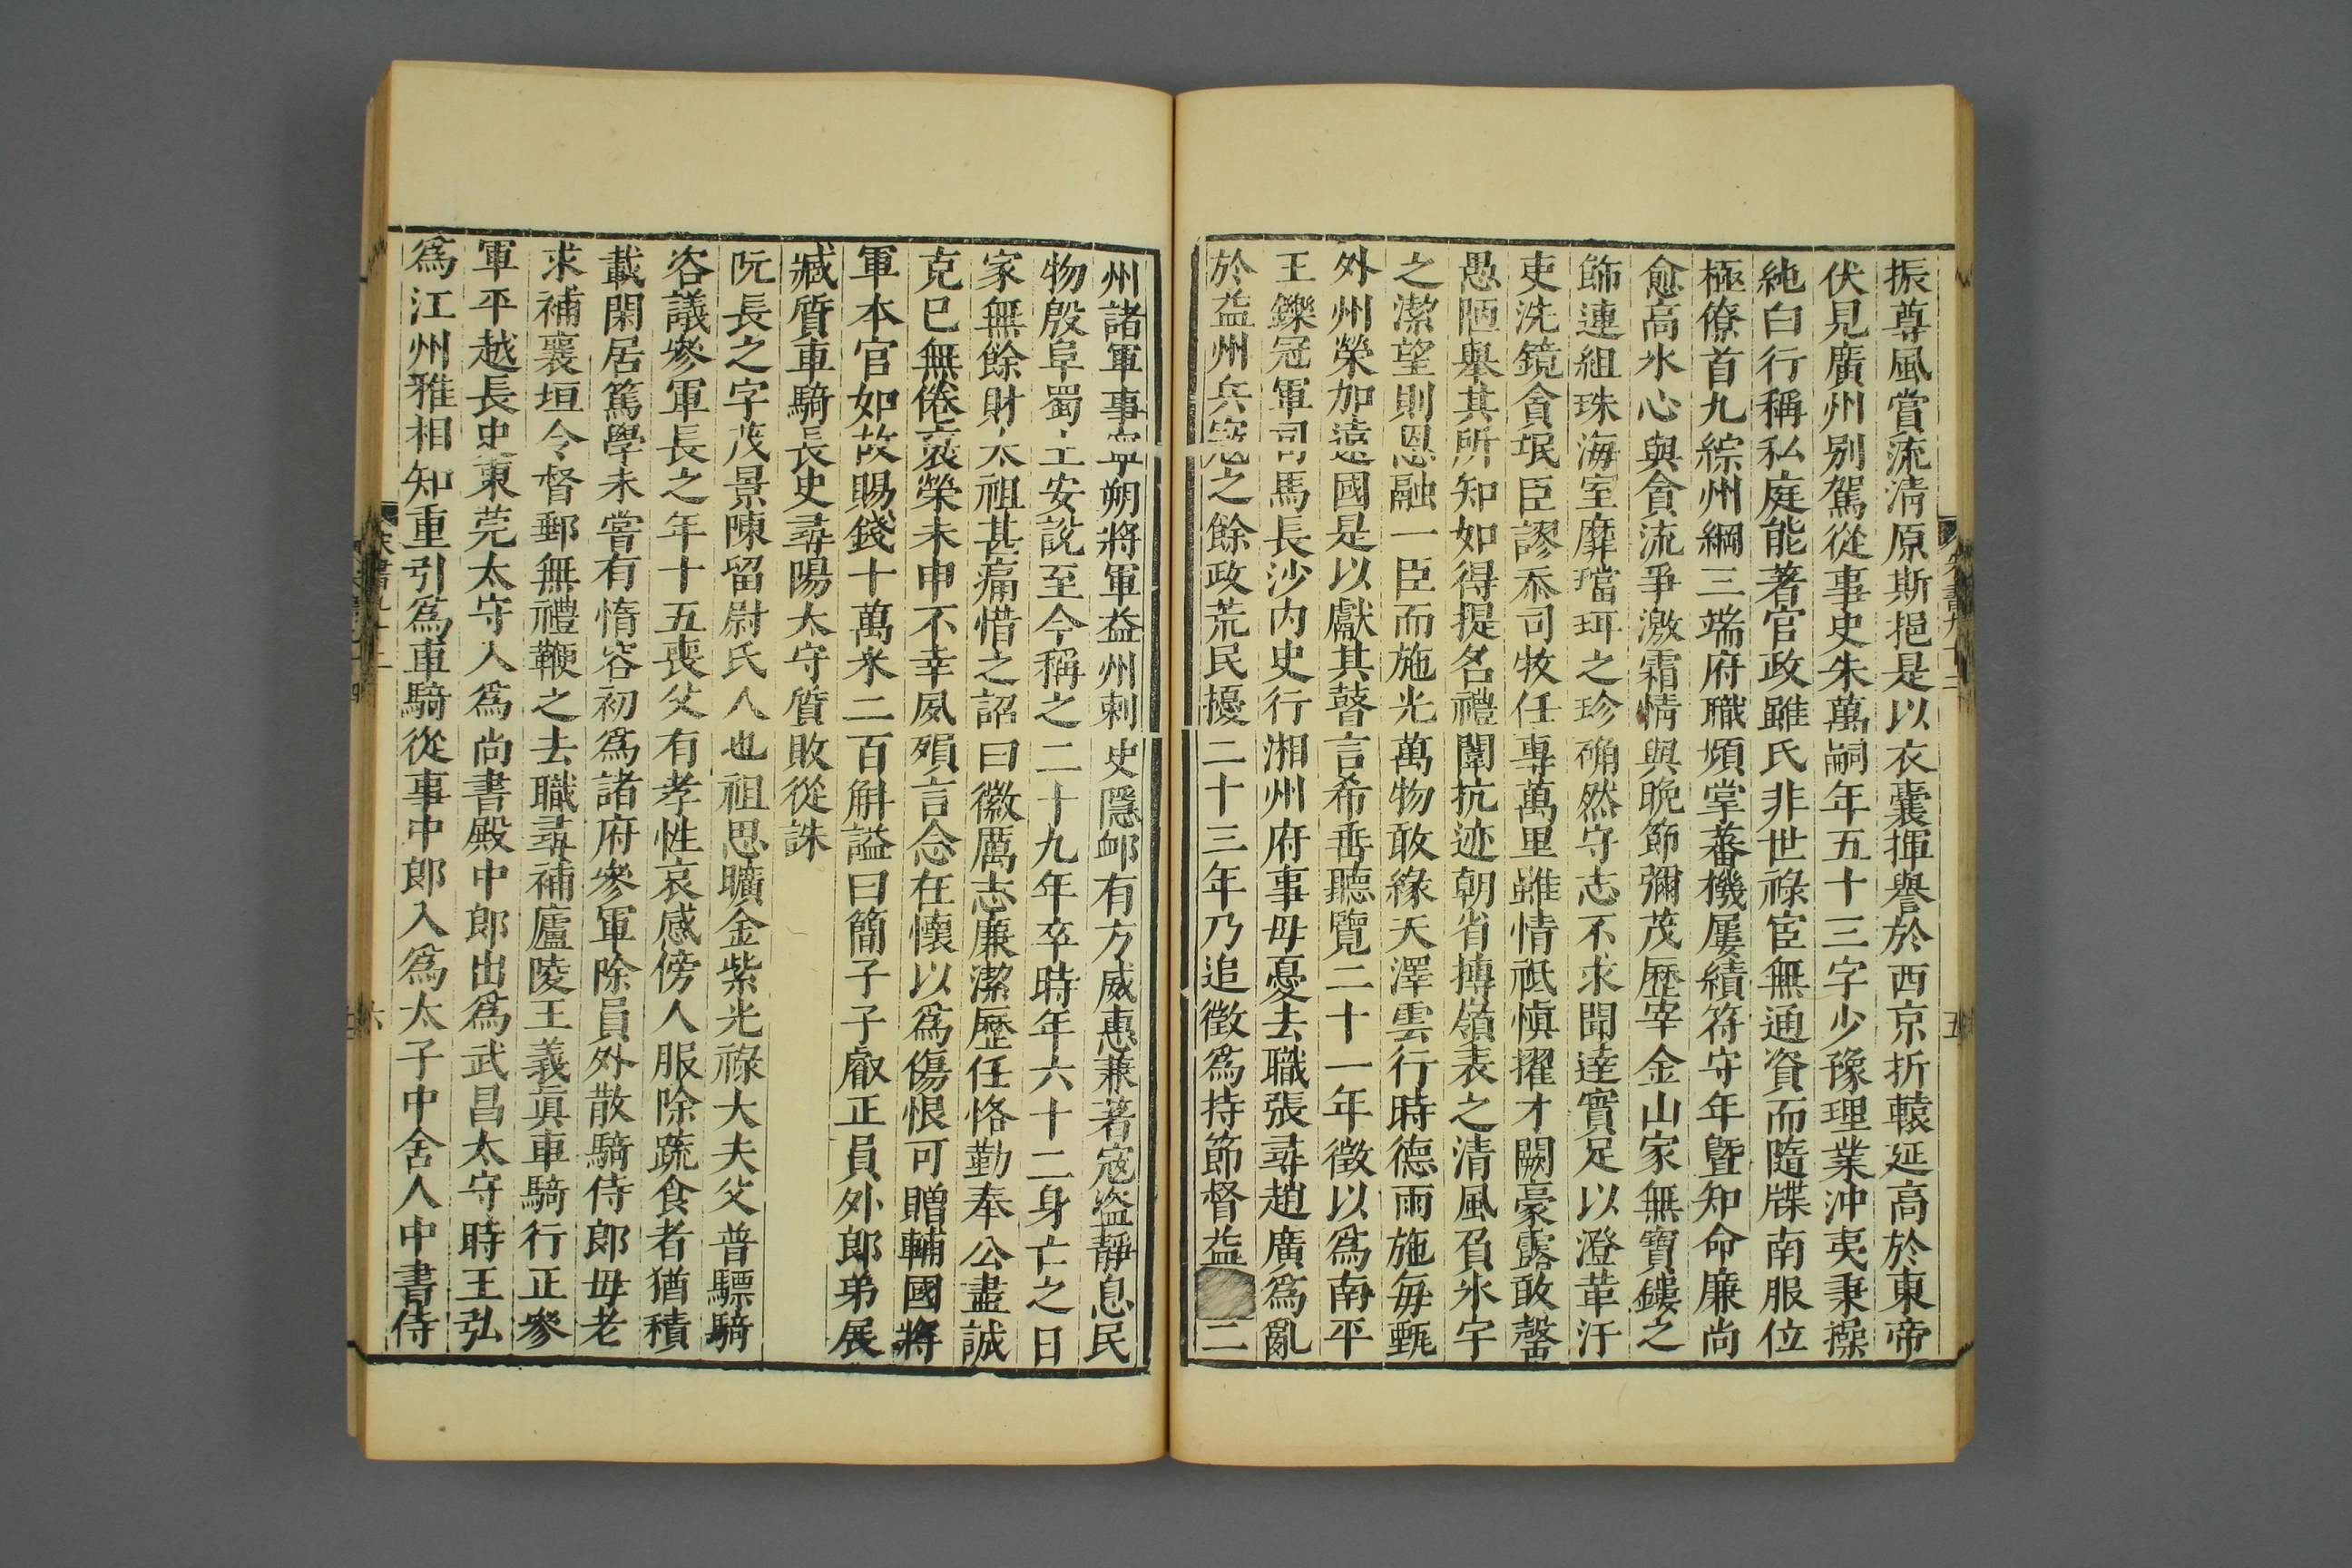 振尊風賞流清原斯挹是以衣囊揮譽於西京折轅延高於東帝
伏見廣州別駕從事史朱萬嗣年五十三字少豫理業沖夷秉操
純白行稱私庭能著官政雖氏非世祿宦無通資而隨牒南服位
極僚首九綜州綱三端府職頻掌蕃機屢績符守年曁知命廉尚
愈高氷心與貪流爭激霜情與晚節彌茂歷宰金山家無寶鏤之
飾連組珠海室靡璫珥之珍确然守志不求聞達實足以澄革汙
吏洗鏡貪氓臣謬忝司牧任專萬里雖情祗慎擢才闕豪露敢罄
愚陋舉其所知如得提名禮闈抗迹朝省搏嶺表之清風負氷宇
之潔望則恩融一臣而施光萬物敢緣天澤雲行時德雨施每甄
外州榮加遠國是以獻其瞽言希垂聽覽二十一年徵以爲南平
王鑠冠軍司馬長沙内史行湘州府事母憂去職張尋趙廣爲亂
於益州兵寇之餘政荒民擾二十三年乃追徵爲持節督益二
州諸軍事寧朔將軍益州刺史隱衈有方威惠兼著寇盜靜息民
物殷阜蜀土安說至今稱之二十九年卒時年六十二身亡之日
家無餘財太祖甚痛惜之詔曰徽厲志廉潔歷任恪勤奉公盡誠
克已無倦哀榮未申不幸夙殞言念在懷以爲傷恨可贈輔國將
軍本官如故賜錢十萬米二百斛謚曰簡子子叡正員外郎弟展
臧質車騎長史尋陽太守質敗從誅
阮長之字茂景陳留尉氏人也祖思曠金紫光祿大夫父普驃騎
咨議參軍長之年十五喪父有孝性哀感傍人服除蔬食者猶積
載閑居篤學未嘗有惰容初爲諸府參軍除員外散騎侍郎母老
求補襄垣令督郵無禮鞭之去職尋補廬陵王義真車騎行正參
軍平越長史東莞太守入爲尚書殿中郎出爲武昌太守時王弘
爲江州雅相知重引爲車騎從事中郎入爲太子中舍人中書侍